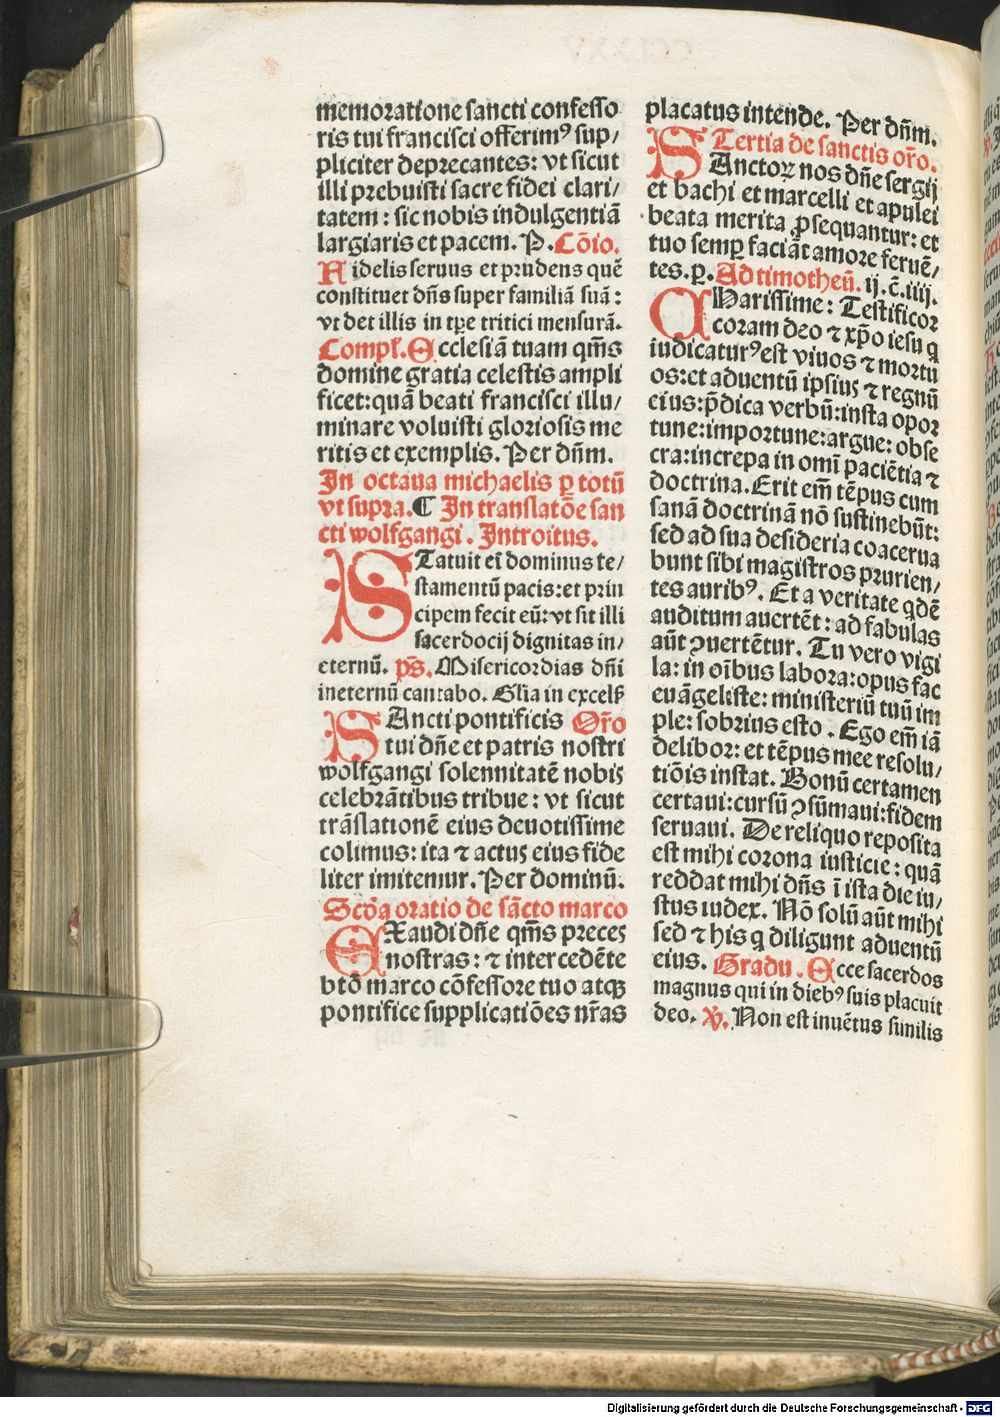 memoratione sancti confesso
ris tui francisci offerimꝰ sup/
pliciter deprecantes: vt sicut
illi prebuisti sacre fidei clari/
tatem: sic nobis indulgentiā
largiaris et pacem. P. Cōio.
Fidelis seruus et prudens quē
constituet dn̄s super familiā suā:
vt det illis in tꝑe tritici mensurā.
Compl̄. Ecclesiā tuam qm̄s
domine gratia celestis ampli
ficet: quā beati francisci illu/
minare voluisti gloriosis me
ritis et exemplis. Per dn̄m.
In octaua michaelis ꝑ totū
vt supra. ¶ In translatōe san
cti wolfgangi. Introitus.
STatuit ei dominus te/
stamentū pacis: et prin
cipem fecit eū: vt sit illi
sacerdocij dignitas in/
eternū. ps̄. Misericordias dn̄i
ineternū cantabo. Glia in excelß
SAncti pontificis Or̄o
tui dn̄e et patris nostri
wolfgangi solennitatē nobis
celebrātibus tribue: vt sicut
trāslationē eius deuotissime
colimus: ita ⁊ actus eius fide
liter imitemur. Per dominū.
Scd̄a oratio de sācto marco
EXaudi dn̄e qm̄s preces
nostras: ⁊ intercedēte
btō marco cōfessore tuo atqꝫ
pontifice supplicatiōes nr̄as
placatus intende. Per dn̄m.
Tertia de sanctis or̄o.
SAnctoꝝ nos dn̄e sergij
et bachi et marcelli et apulei
beata merita ꝓsequantur: et
tuo semꝑ faciāt amore feruē/
tes. p. Ad timotheū. ij. c̄. iiij.
CHarissime: Testificor
coram deo ⁊ xp̄o iesu q
iudicaturꝰ est viuos ⁊ mortu
os: et aduentū ipsius ⁊ regnū
eius: p̄dica verbū: insta opor
tune: importune: argue: obse
cra: increpa in omi paciētia ⁊
doctrina. Erit em̄ tēpus cum
sanā doctrinā nō sustinebūt:
sed ad sua desideria coacerua
bunt sibi magistros prurien/
tes auribꝰ. Et a veritate qdē
auditum auertēt: ad fabulas
aūt ꝯuertētur. Tu vero vigi
la: in oībus labora: opus fac
euāgeliste: ministeriū tuū im
ple: sobrius esto. Ego em̄ iā
delibor: et tēpus mee resolu/
tiōis instat. Bonū certamen
certaui: cursū ꝯsūmaui: fidem
seruaui. De reliquo reposita
est mihi corona iusticie: quā
reddat mihi dn̄s ī ista die iu/
stus iudex. Nō solū aūt mihi
sed ⁊ his q diligunt aduentū
eius. Gradu. Ecce sacerdos
magnus qui in diebꝰ suis placuit
deo. ꝟ. Non est inuētus similis
Digitalisierung gefördert durch die Deutsche Forschungsgemeinschaft - DFG